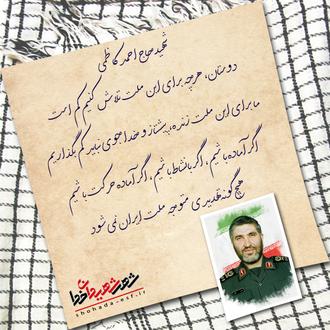 شهید حاج احمد کاظمی
دوستان، هرچه برای این ملت تلاش کنیم کم است
ما برای این ملت زنده، پیشتاز و خداجوی نباید کم بگذاریم
اگر آماده باشیم، اگر بانشاط باشیم، اگر آماده حرکت باشیم
هیچ گونه تهدیدی متوجه ملت ایران نمی شود
shohada-esf.ir